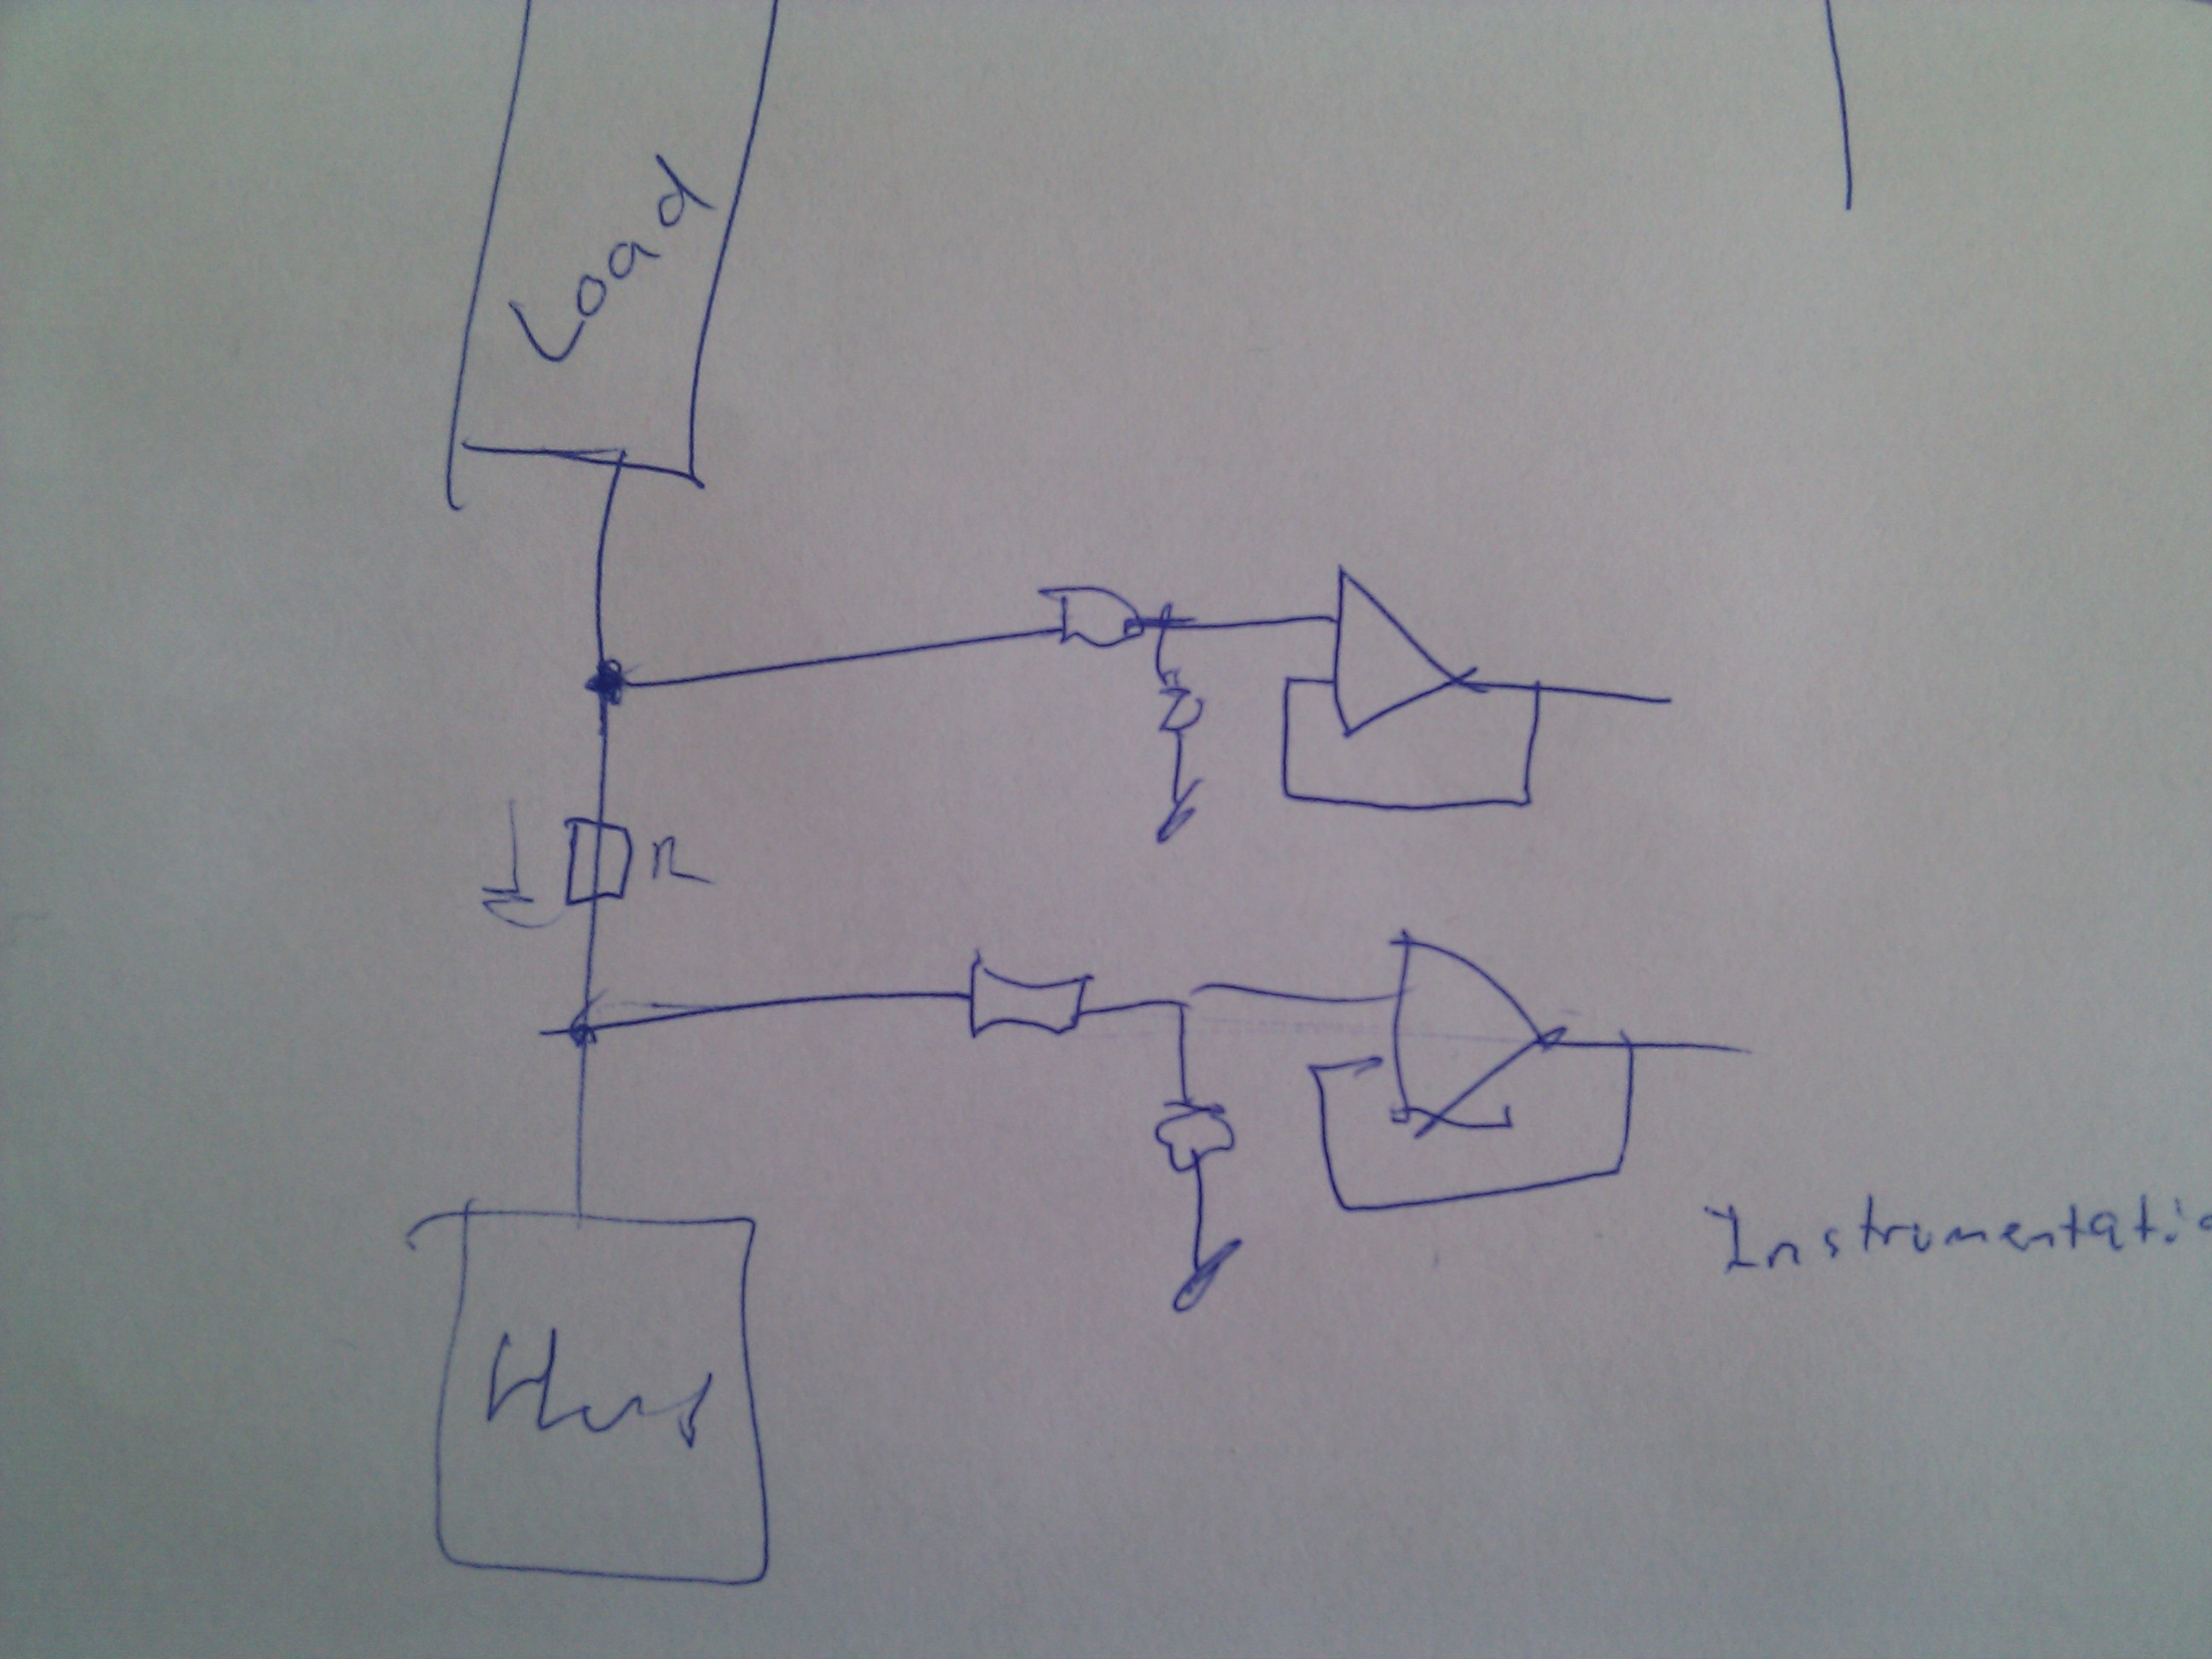 Load
R
Instrumentatio